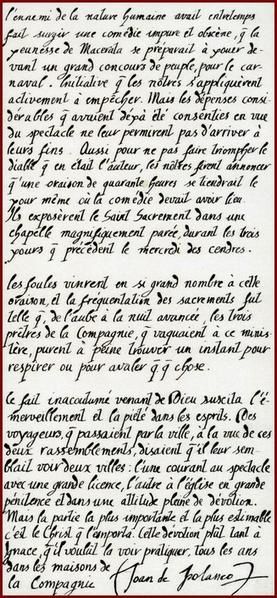 l'ennemi de la nature humaine avait entretemps
fait surgir une comédie impure et obscène, q̃ la
jeunesse de Macerata se préparait à jouer de-
vant un grand concours de peuple, pour le car-
naval. Initiative q̃ les nôtres s'appliquèrent
activement à empêcher. Mais les dépenses consi-
dérables q̃ avaient déjà été consenties en vue
du spectacle ne leur permirent pas d'arriver à
leurs fins. Aussi pour ne pas faire triompher le
diable q̃ en était l'auteur, les nôtres firent annoncer
q̃ une oraison de quarante heures se tiendrait le
jour même où la comédie devait avoir lieu.
Ils exposèrent le Saint Sacrement dans une
chapelle magnifiquement parée, durant les trois
jours q̃ précèdent le mercredi des cendres.
les foules vinrent en si grand nombre à cette
oraison, et la fréquentation des sacrements fut
telle q̃, de l'aube à la nuit avancée, les trois
prêtres de la Compagnie, q̃ vaquaient à ce minis-
tère, purent à peine trouver un instant pour
respirer ou pour avaler q̃ q̃ chose.
le fait inacoutumé venant de Dieu suscita l'é-
merveillement et la piété dans les esprits. Des
voyageurs, q̃ passaient par la ville, à la vue de ces
deux rassemblements, disaient q̃ il leur sem-
blait voir deux villes: l'une courant au spectacle
avec une grande licence, l'autre à l'église en grande
pénitence et dans une attitude pleine de dévotion.
Mais la partie la plus importante et la plus estimable
c'est le Christ q̃ l'emporta. Cette dévotion plût tant à
Ignace, q̃ il voulut la voir pratiquer, tous les ans
dans les maisons de
la Compagnie (Joan de Polanco)